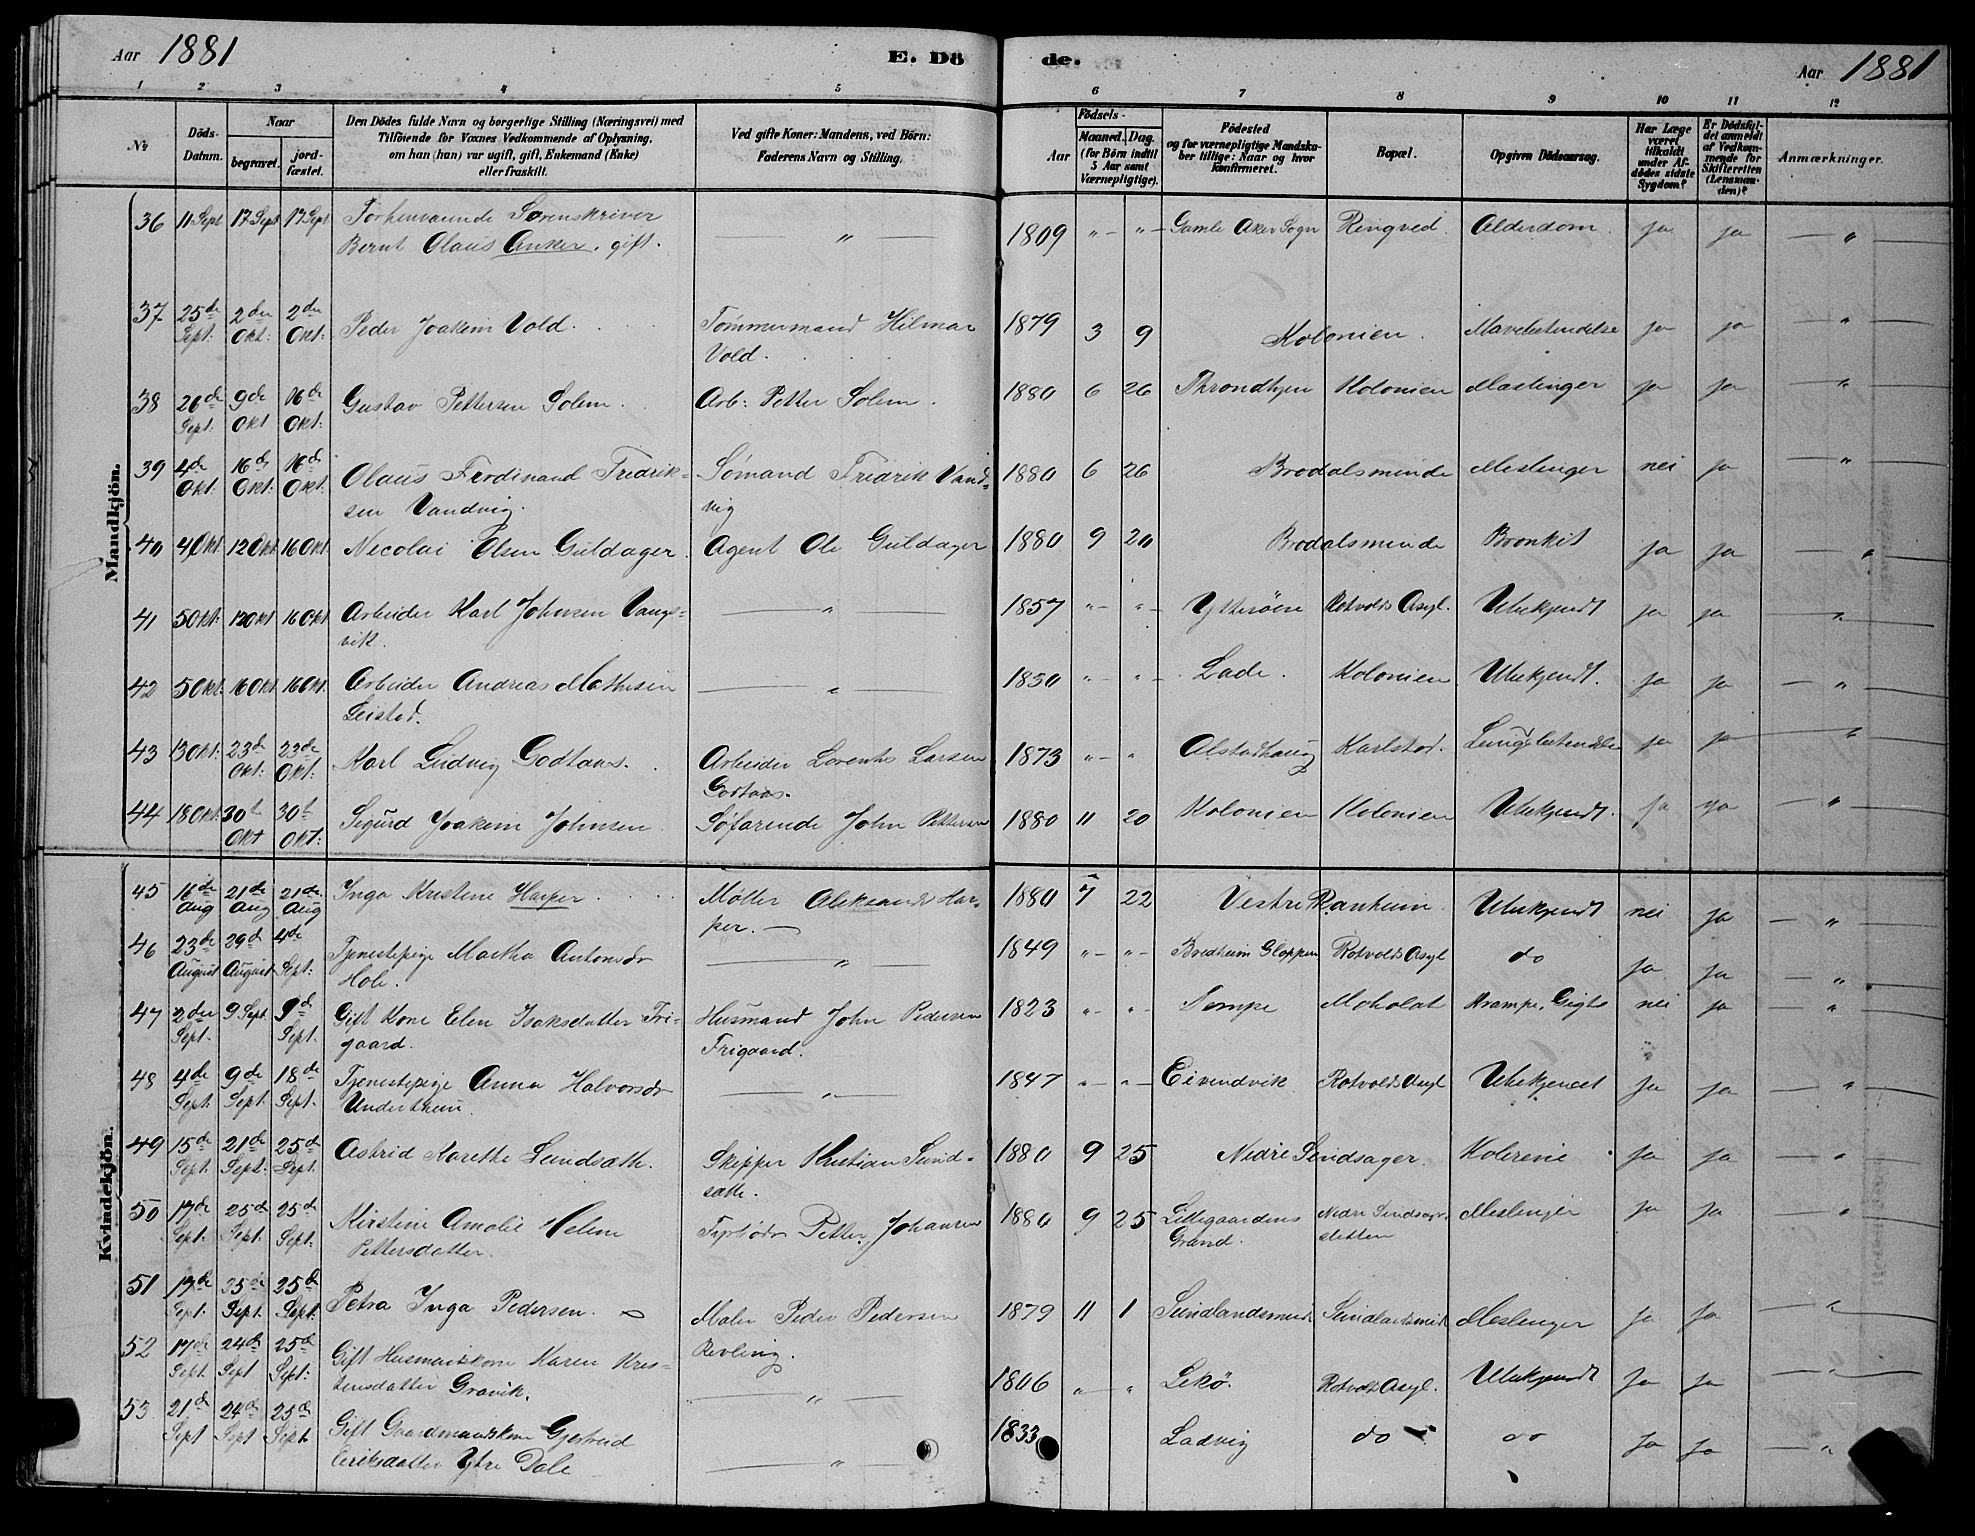 Aar 1881
E. Dö
de.
Aar 1881
1 2 3 4 5 6 7 8 9 10 11 12
№
Döds-Datum.
Naar
begravet.
jord-fæstet.
Den Dödes fulde Navn og borgerlige Stilling (Næringsvei) med
Tilföiende for Voxnes Vedkommende af Oplysning,
om han (hun) var ugift, gift, Enkemand (Enke)
eller fraskilt.
Ved gifte Koner: Mandens, ved Börn:
Faderens Navn og Stilling.
Födsels-
Aar
Maaned.
Dag.
(for Börn indtil
5 Aar samt
Værnepligtige).
Födested
og for værnepligtige Mandska-
ber tillige: Naar og hvor
konfirmeret.
Bopæl.
Opgiven Dödsaarsag.
Har Læge
været
tilkaldt
under Af-
dödes sidste
Sygdom?
Er Dödsfal-
det anmeldt
af Vedkom-
mende for
Skifteretten
(Lensman-
den)?
Anmærkninger.
Mandkjön.
36 11 Sept 17 Sept 17 Sept Forhenværende Sorenskriver
Bernt Olaus Anker. gift. " 1809 " " Gamle Aker Sogn Ringved. Alderdom. ja ja "
37 25de Sept: 2den Okt: 2den Okt: Peder Joakim Vold. Tømmermand Hilmar
Vold. 1879 3 9 Kolonien. Mavebetændelse ja ja "
38 26de Sept: 9de Okt 16de Okt: Gustav Pettersen Solem. Arb: Petter Solem. 1880 6 26 Throndhjem Kolonien Meslinger ja ja "
39 4de Okt: 16de Okt: 16de Okt: Olaus Ferdinand Fredrik-
sen Vandvig. Sömand Fridrik Vand-
vig 1880 6 26 Brodalsminde Meslinger nei ja "
40 4 Okt 12 Okt 16 Okt Necolai Olsen Guldager. Agent Ole Guldager 1880 9 20 Brodalsminde Bronkit ja ja "
41 5 Okt: 12 Okt 16 Okt Arbeider Karl Johnsen Vangs-
vik. " 1857 " " Ytterøen Rotvolds Asyl. Ubekjendt ja ja "
42 5 Okt: 16 Okt 16 Okt. Arbeider Andreas Mathisen
Leistad. " 1830 " " Lade. Kolonien Ubekjendt. ja ja "
43 13 Okt: 23de Okt: 23de Okt: Karl Ludvig Godtaas. Arbeider Lorents Larsen
Godtaas. 1873 " " Alstadhaug Karlstad. Lungebetændelse ja ja "
44 18 Okt: 30t Okt 30t Okt: Sigurd Joakim Johnsen Søfarende John Pettersen 1880 11 20 Kolonien Kolonien Ubekjendt. ja ja "
Kvindekjön.
45 16de Aug 21de Aug 21de Aug Inga Kristine Harper. Møller Aleksander Har-
per. 1880 7 22 Vestre Ranheim. Ubekjendt nei ja "
46 23de August 29d August 4de Sept: Tjenestepige Martha Antonsdr
Hole. " 1849 " " Bredheim Gloppen Rotvolds Asyl do ja ja "
47 2den Sept. 9 Sept. 9d Sept. Gift Kone Elen Isaksdatter Fri-
gaard. Husmand John Pedersen
Frigaard. 1823 " " Tempe Moholdt Krampe, Gigt nei ja "
48 4de Sept. 9de Sept. 18de Sept. Tjenestepige Anna Halvorsdr
Undertheim. " 1847 " " Eivindvik Rotvolds Asyl Ubekjendt ja ja "
49 15de Sept. 21de Sept: 25de Sept. Astrid Karethe Sundsath. Skipper Kristian Sund-
sath. 1880 9 25 Nedre Sundsager. Kolerine ja ja "
50 17de Sept. 25de Sept. 25de Sept: Kirstine Amalie Helene
Pettersdatter. Petter Johansen 1880 9 25 Lillegaardens
Grand. Nedre
sletten Meslinger ja ja "
51 17de Sept: 25de Sept. 25de Sept. Petra Inga Pedersen. Maler Peder Pedersen
Revling. 1879 11 1 Sundlandsmind Sundlandsmind Meslinger ja ja "
52 17de Sept. 24de Sept 25de Sept: Gift Husmandskone Karen Kris-
tensdatter Gravik. " 1806 " " Lekø. Rotvolds Asyl. Ubekjendt ja ja "
53 21de Sept 24de Sept 25de Sept. Gift Gaardmandskone Gjertrud
Eriksdatter Ytre Dale " 1833 Ladvig do do ja ja "